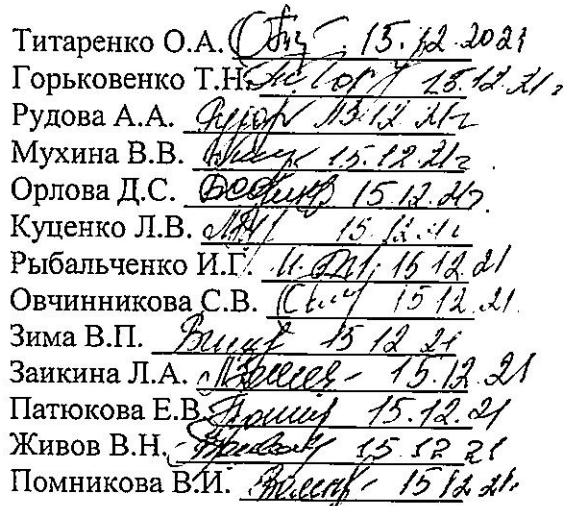 Титаренко О.А. 15.12.2021
Горьковенко Т.Н. 15.12.21г
Рудова А.А. 15.12.21г
Мухина В.В. 15.12.21г
Орлова Д.С. 15.12.21г.
Куценко Л.В. 15.12.21г
Рыбальченко И.Г. 15.12.21
Овчинникова С.В. 15.12.21.
Зима В.П. 15 12 21
Заикина Л.А. 15.12.21
Патюкова Е.В. 15.12.21
Живов В.Н. 15 12 21
Помникова В.И. 15 12 21.